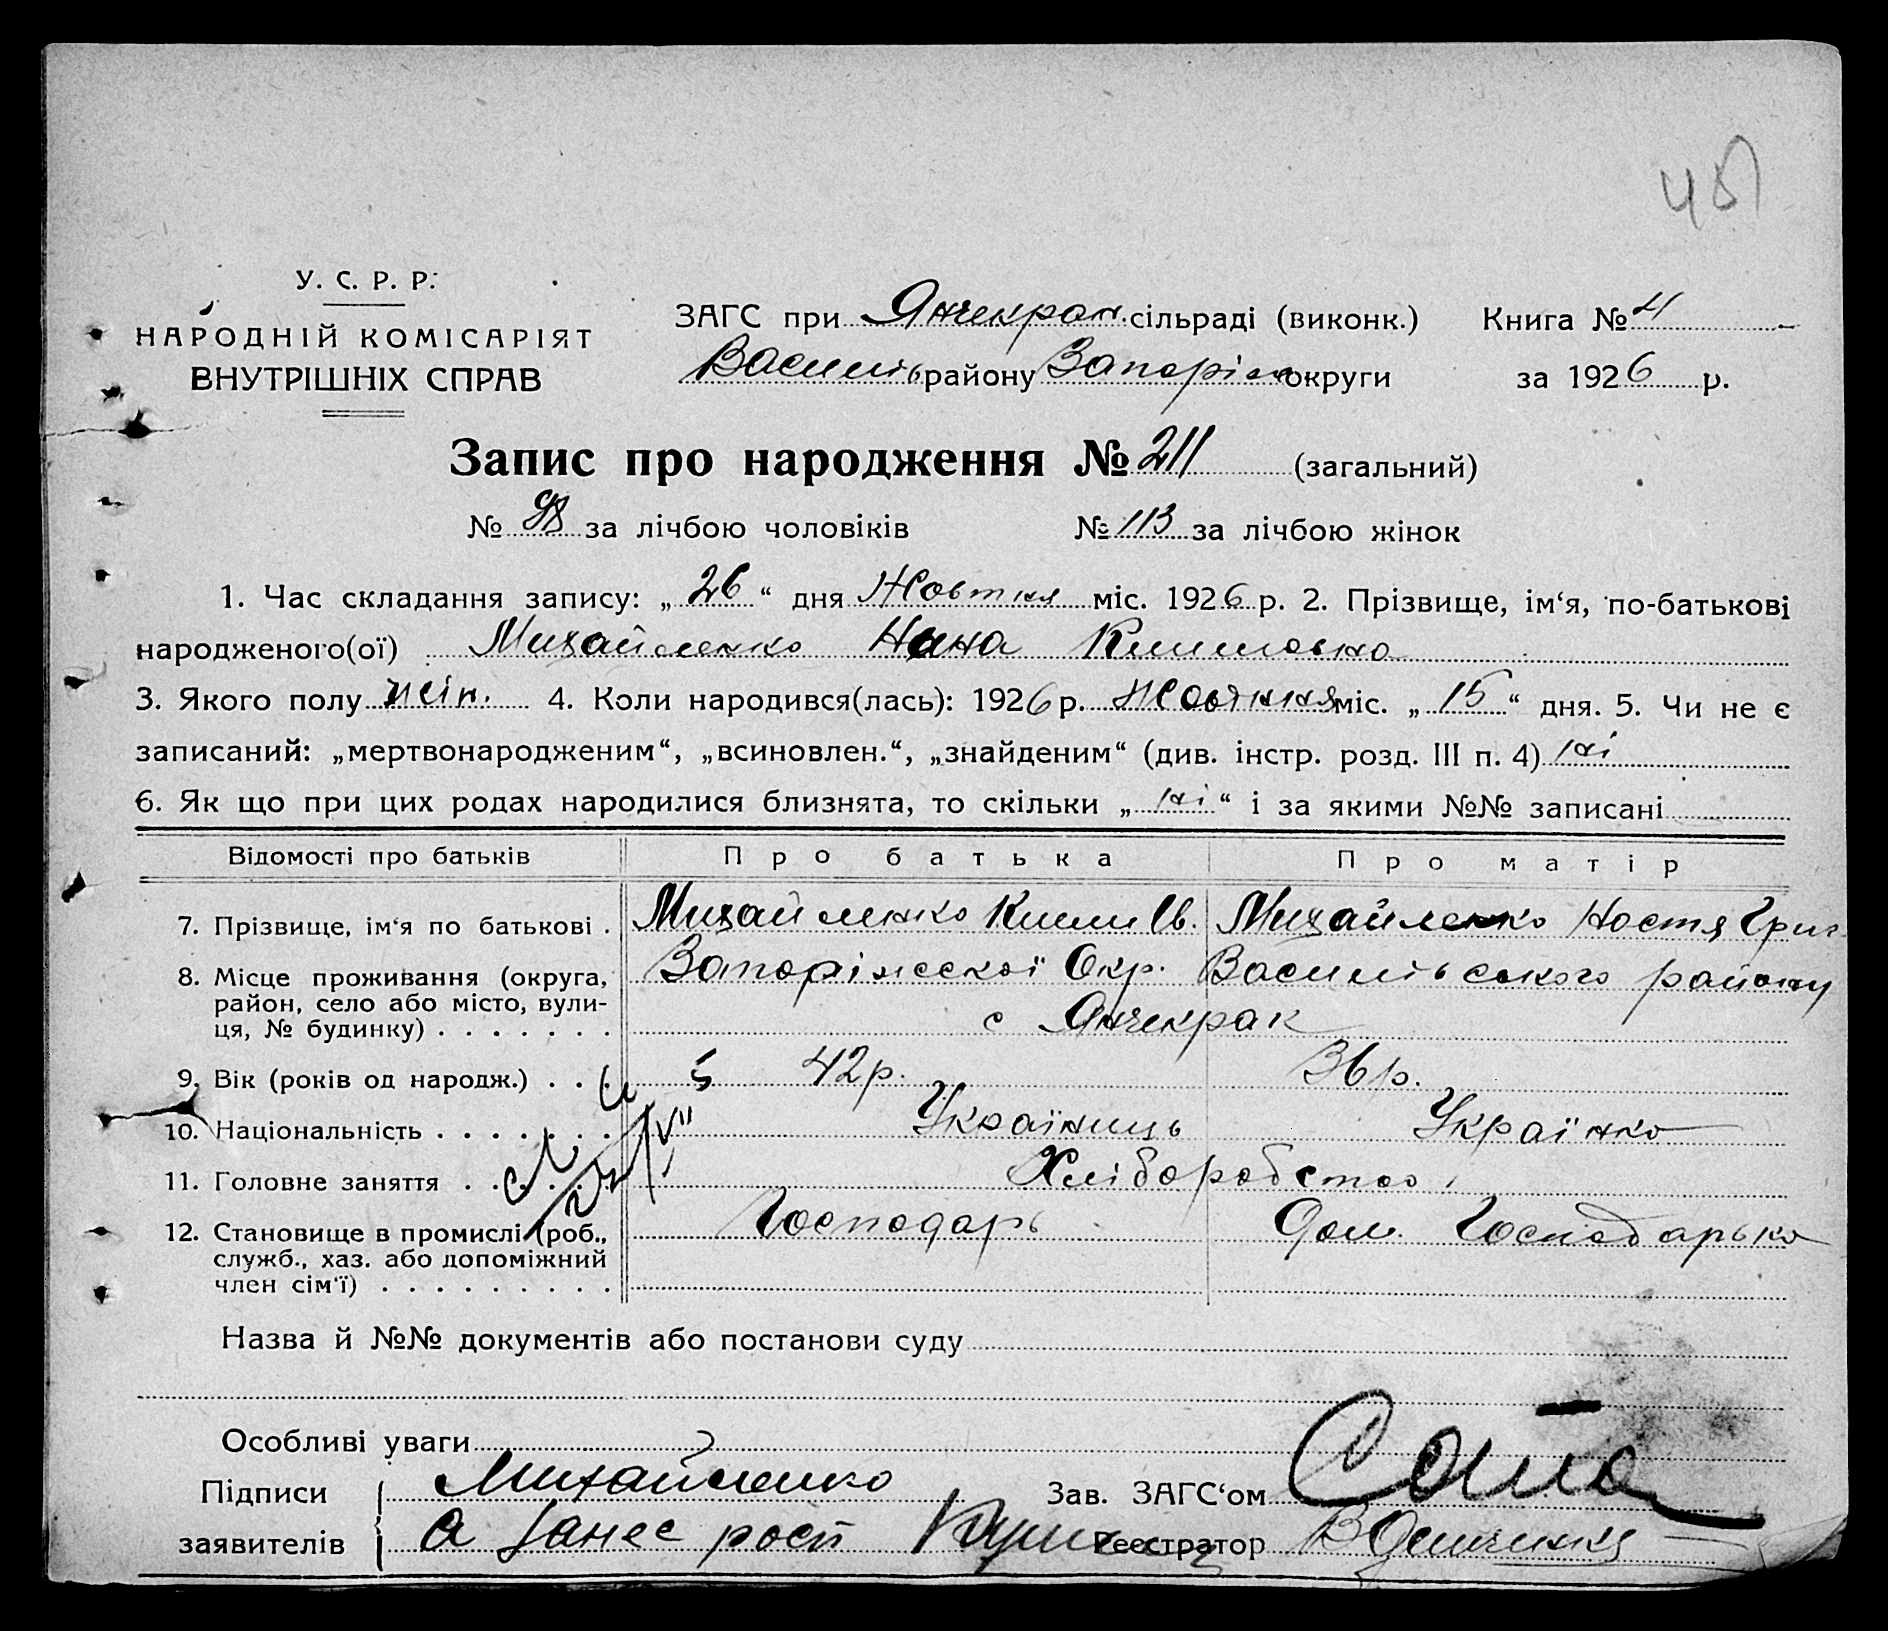 45
У. С. Р. Р.
НАРОДНІЙ КОМІСАРІЯТ
ВНУТРІШНІХ СПРАВ
ЗАГС при Янчекрак сільраді (виконк.) Книга № 4
Василів району Запоріж округи за 1926 р.
Запис про народження № 211 (загальний)
№ 98 за лічбою чоловіків № 113 за лічбою жінок
1. Час складання запису: „26“ дня Жовтня міс. 1926 р. 2. Прізвище, ім‘я, по-батькові
народженого(ої) Михайленко Нина Климовна
3. Якого полу жін. 4. Коли народився(лась): 1926 р. Жовтня міс. „15“ дня. 5. Чи не є
записаний: „мертвонародженим“, „всиновлен.“, „знайденим“ (див. інстр. розд. III п. 4) ні
6. Як що при цих родах народилися близнята, то скільки „ні“ і за якими №№ записані
Відомості про батьків Про батька Про матір
7. Прізвище, ім‘я по батькові . Михайленко Клим Ів. Михайленко Настя Григ
8. Місце проживання (округа, Запоріжської Окр. Василівського району
район, село або місто, вули-
ця, № будинку) . . . . . . . с Янчекрак
9. Вік (років од народж.) . . . 42 р. 36 р.
10. Національність . . . . . . . Україниць Українка
11. Головне заняття . . . . . . Хліборобство
12. Становище в промислі (роб., Господарь Дом. Господарька
служб., хаз. або допоміжний
член сім‘ї) . . . . . . . . .
Назва й №№ документів або постанови суду
Особливі уваги
Підписи Михайленко Зав. ЗАГС‘ом
заявителів Реєстратор